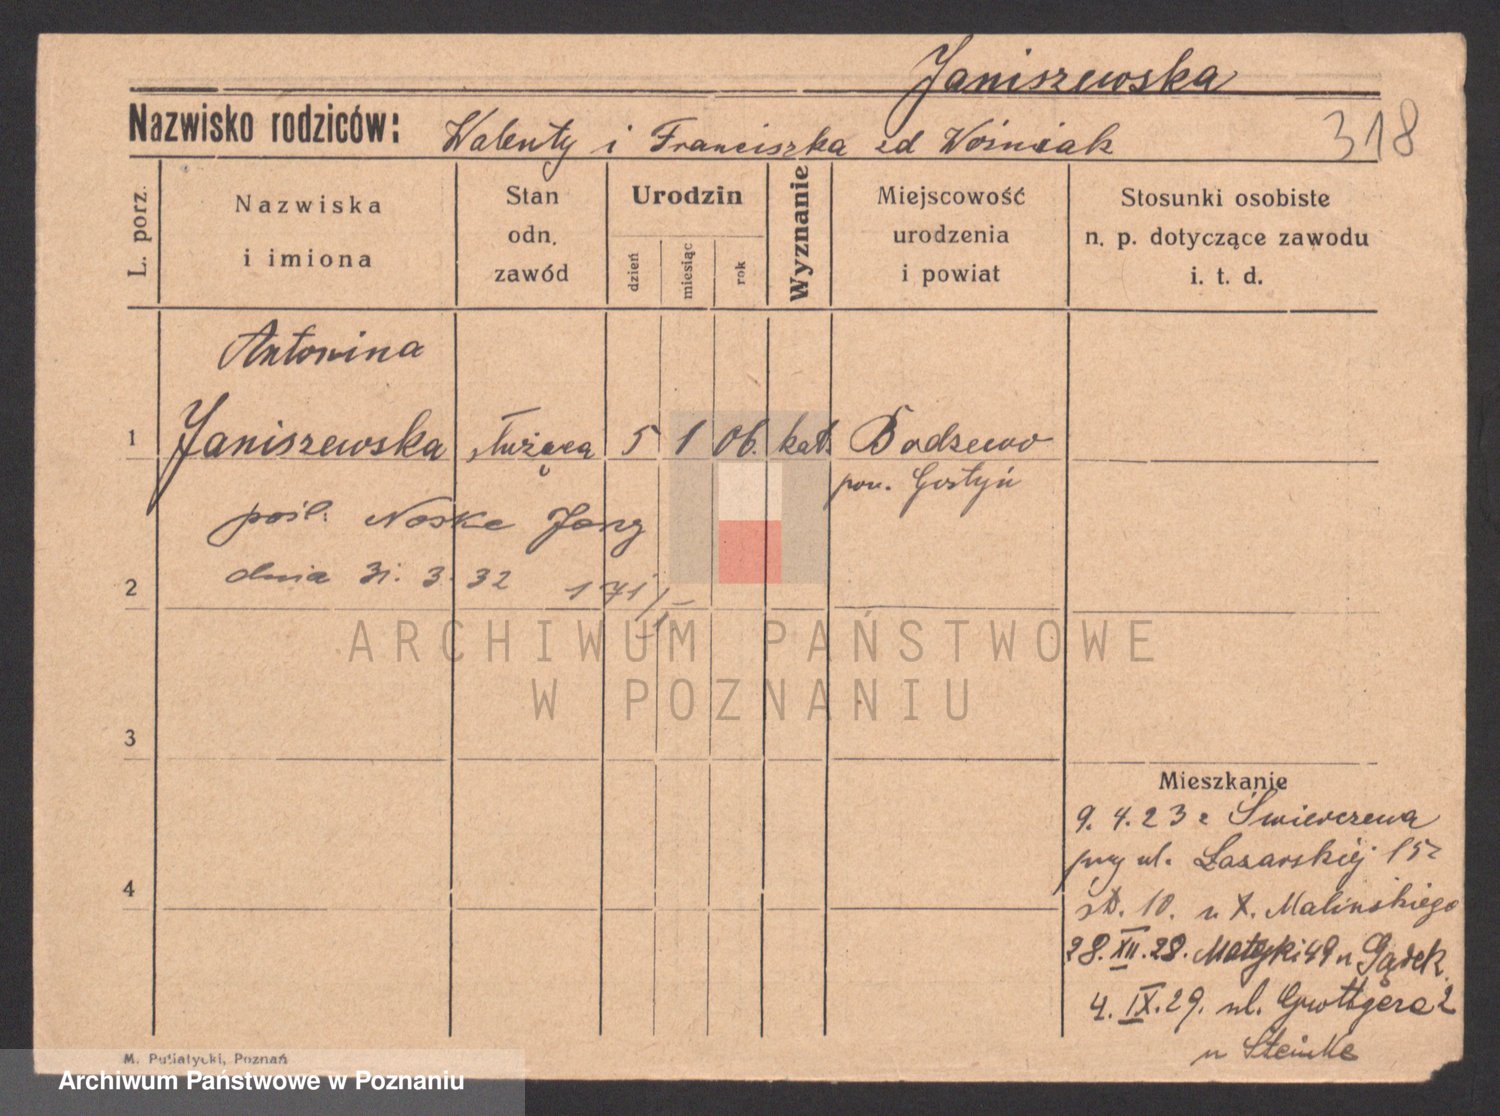 Janiszewska
Nazwisko rodziców: Walenty i Franciszka zd Woźniak 318
L. porz.
Nazwiska i imiona
Stan odn. zawód
Urodzin
dzień
miesiąc
rok
Wyznanie
Miejscowość urodzenia i powiat
Stosunki osobiste n. p. dotyczące zawodu i. t. d.
Antonina
1 Janiszewska służąca 5 1 06. kat. Bodzewo
pow. Gostyń
pośl. Noske Jerzy
dnia 31. 3. 32 171/
2
ARCHIWUM PAŃSTWOWE
W POZNANIU
3
Mieszkanie
9. 4. 23 z Świerczewa
przy ul. Łazarskiej 15
4
st. 10. u X. Malińskiego
28. XII. 28. Matejki 49 u Gądek
4. IX. 29. ul. Grottgera 2
u Steinke
M. Putiatycki, Poznań
Archiwum Państwowe w Poznaniu